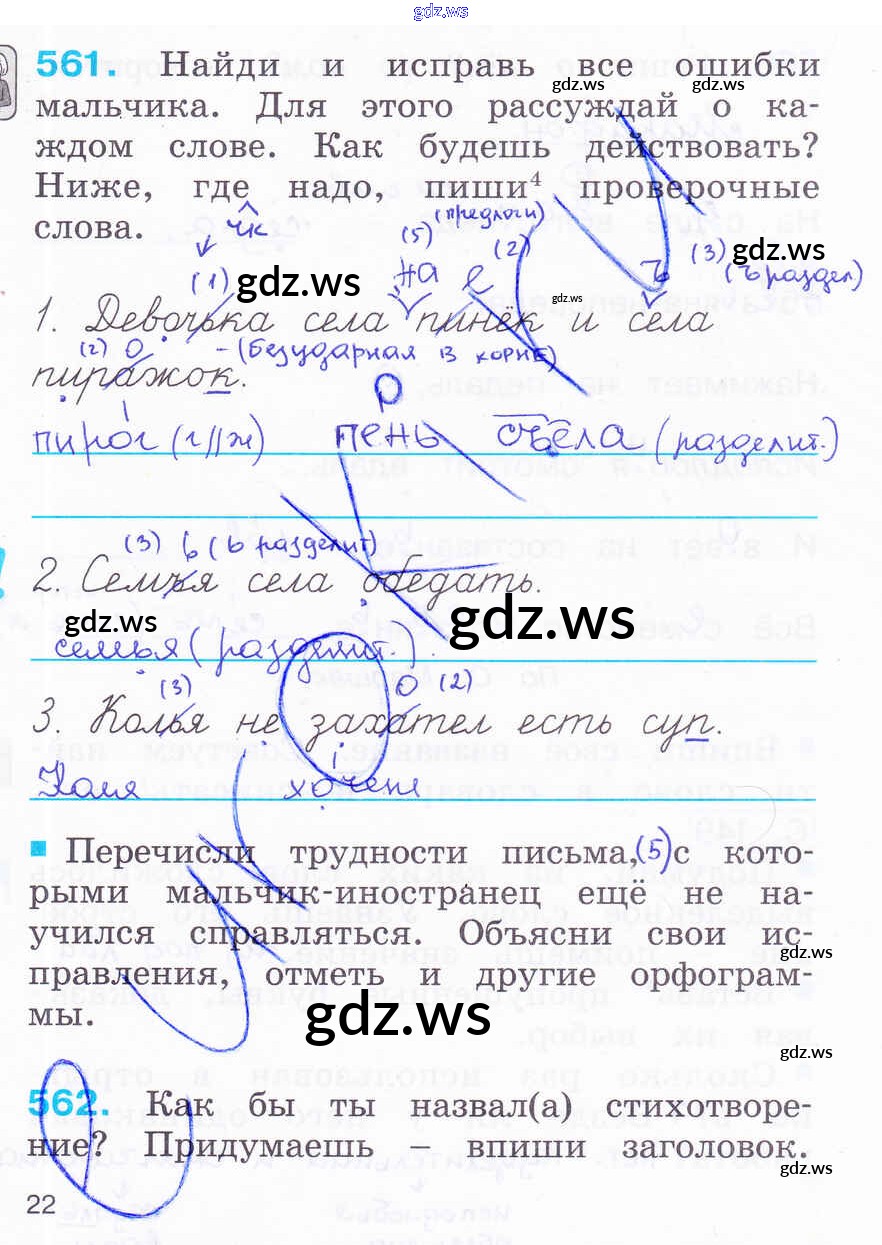 gdz.ws
561. Найди и исправь все ошибки
gdz.ws gdz.ws
мальчика. Для этого рассуждай о ка-
ждом слове. Как будешь действовать?
Ниже, где надо, пиши⁴ проверочные
слова. чк (5) (предлоги)
(1) gdz.ws на е (2) ъ (3) gdz.ws (ъ раздел)
gdz.ws
1. Девочька села пинёк и села
(2) о - (безударная в корне)
пиражок.
пирог (г//ж) пень съела (разделит.)
(3) ь (ь разделит)
2. Семъя села обедать.
gdz.ws gdz.ws
семья (разделит.)
(3) о (2)
3. Колья не захател есть суп.
Коля хочет
Перечисли трудности письма, (5) с кото-
рыми мальчик-иностранец ещё не на-
учился справляться. Объясни свои ис-
gdz.ws
правления, отметь и другие орфограм-
мы.
gdz.ws
gdz.ws
562. Как бы ты назвал(а) стихотворе-
ние? Придумаешь – впиши заголовок.
gdz.ws
22